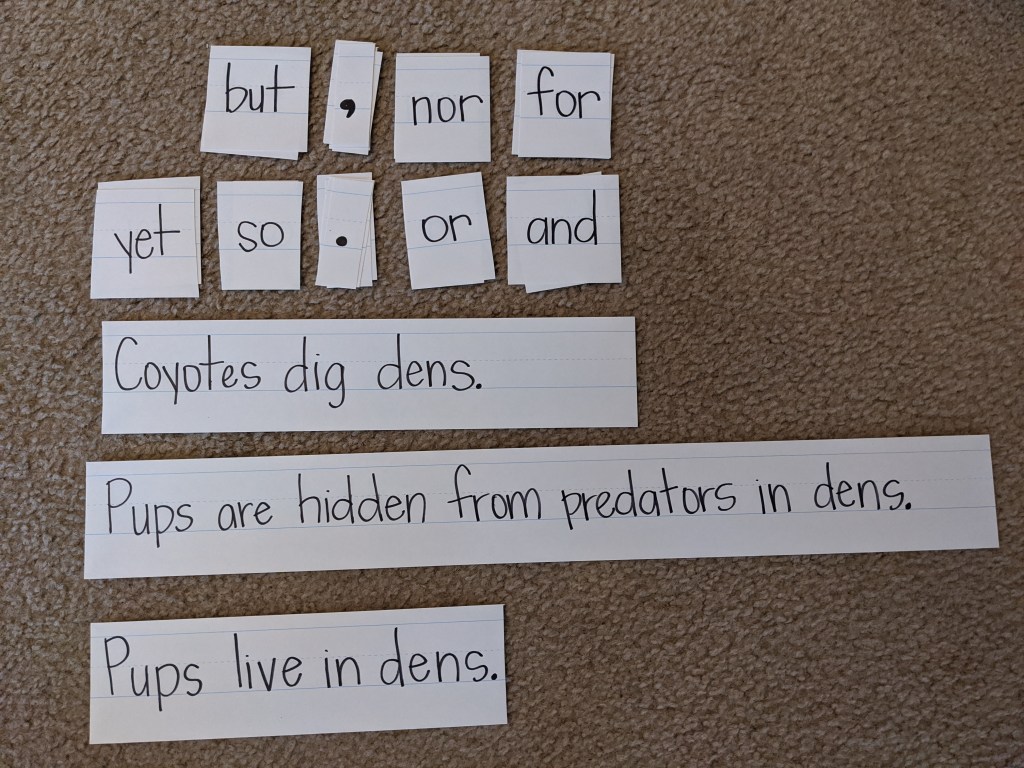 but , nor for
yet so . or and
Coyotes dig dens.
Pups are hidden from predators in dens.
Pups live in dens.